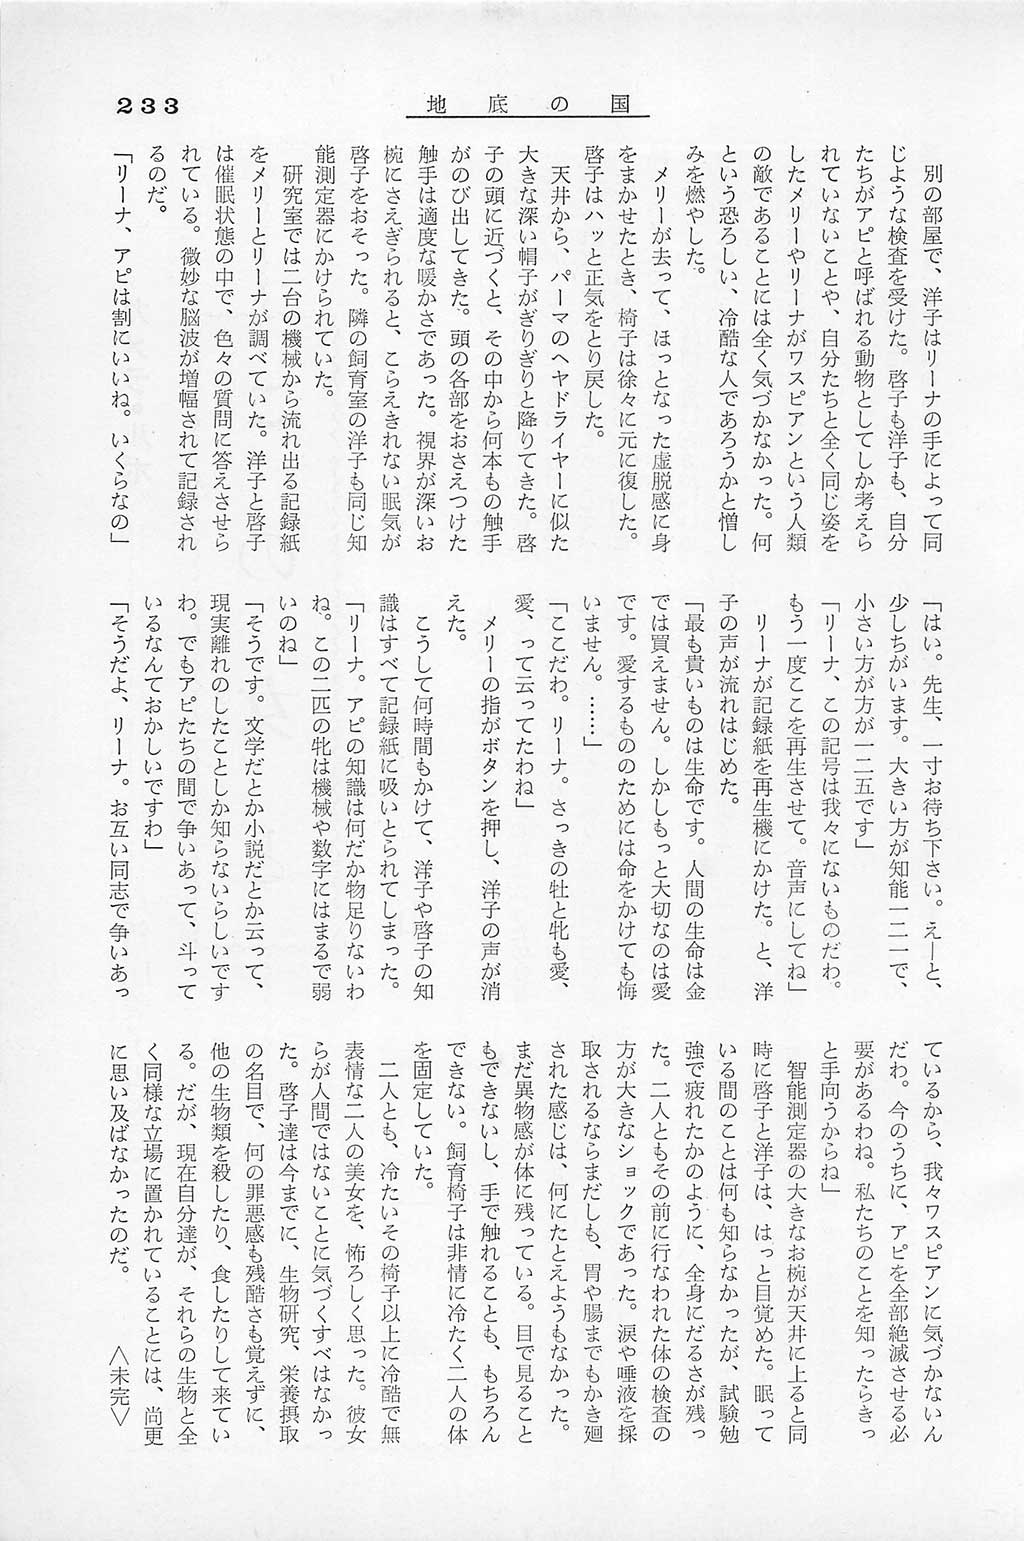 233
地底の国
別の部屋で、洋子はリーナの手によって同
じような検査を受けた。啓子も洋子も、自分
たちがアピと呼ばれる動物としてしか考えら
れていないことや、自分たちと全く同じ姿を
したメリーやリーナがワスピアンという人類
の敵であることには全く気づかなかった。何
という恐ろしい、冷酷な人であろうかと憎し
みを燃やした。
メリーが去って、ほっとなった虚脱感に身
をまかせたとき、椅子は徐々に元に復した。
啓子はハッと正気をとり戻した。
天井から、パーマのヘヤドライヤーに似た
大きな深い帽子がぎりぎりと降りてきた。啓
子の頭に近づくと、その中から何本もの触手
がのび出してきた。頭の各部をおさえつけた
触手は適度な暖かさであった。視界が深いお
椀にさえぎられると、こらえきれない眠気が
啓子をおそった。隣の飼育室の洋子も同じ知
能測定器にかけられていた。
研究室では二台の機械から流れ出る記録紙
をメリーとリーナが調べていた。洋子と啓子
は催眠状態の中で、色々の質問に答えさせら
れている。微妙な脳波が増幅されて記録され
るのだ。
「リーナ、アピは割にいいね。いくらなの」
「はい。先生、一寸お待ち下さい。え―と、
少しちがいます。大きい方が知能一二一で、
小さい方が方が一二五です」
「リーナ、この記号は我々にないものだわ。
もう一度ここを再生させて。音声にしてね」
リーナが記録紙を再生機にかけた。と、洋
子の声が流れはじめた。
「最も貴いものは生命です。人間の生命は金
では買えません。しかしもっと大切なのは愛
です。愛するもののためには命をかけても悔
いません。……」
「ここだわ。リーナ。さっきの牡と牝も愛、
愛、って云ってたわね」
メリーの指がボタンを押し、洋子の声が消
えた。
こうして何時間もかけて、洋子や啓子の知
識はすべて記録紙に吸いとられてしまった。
「リーナ。アピの知識は何だか物足りないわ
ね。この二匹の牝は機械や数字にはまるで弱
いのね」
「そうです。文学だとか小説だとか云って、
現実離れのしたことしか知らないらしいです
わ。でもアピたちの間で争いあって、斗って
いるなんておかしいですわ」
「そうだよ、リーナ。お互い同志で争いあっ
ているから、我々ワスピアンに気づかないん
だわ。今のうちに、アピを全部絶滅させる必
要があるわね。私たちのことを知ったらきっ
と手向うからね」
智能測定器の大きなお椀が天井に上ると同
時に啓子と洋子は、はっと目覚めた。眠って
いる間のことは何も知らなかったが、試験勉
強で疲れたかのように、全身にだるさが残っ
た。二人ともその前に行なわれた体の検査の
方が大きなショックであった。涙や唾液を採
取されるならまだしも、胃や腸までもかき廻
された感じは、何にたとえようもなかった。
まだ異物感が体に残っている。目で見ること
もできないし、手で触れることも、もちろん
できない。飼育椅子は非情に冷たく二人の体
を固定していた。
二人とも、冷たいその椅子以上に冷酷で無
表情な二人の美女を、怖ろしく思った。彼女
らが人間ではないことに気づくすべはなかっ
た。啓子達は今までに、生物研究、栄養摂取
の名目で、何の罪悪感も残酷さも覚えずに、
他の生物類を殺したり、食したりして来てい
る。だが、現在自分達が、それらの生物と全
く同様な立場に置かれていることには、尚更
に思い及ばなかったのだ。　　〈未完〉